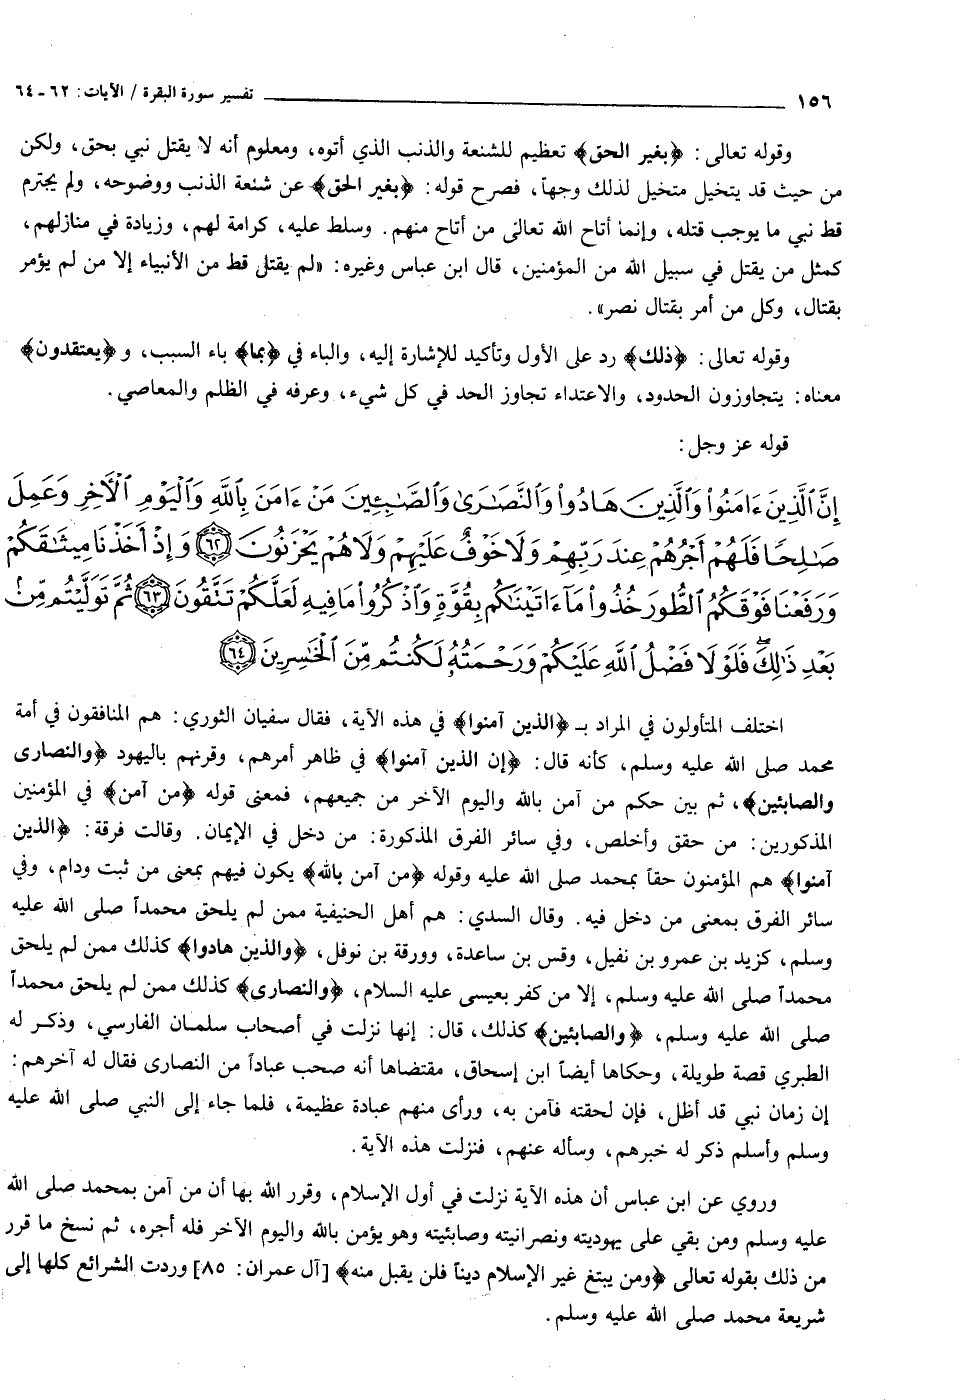 ١٥٦ تفسير سورة البقرة / الآيات: ٦٢-٦٤
وقوله تعالى: ﴿بغير الحق﴾ تعظيم للشنعة والذنب الذي أتوه، ومعلوم أنه لا يقتل نبي بحق، ولكن
من حيث قد يتخيل متخيل لذلك وجهاً، فصرح قوله: ﴿بغير الحق﴾ عن شنعة الذنب ووضوحه، ولم يجترم
قط نبي ما يوجب قتله، وإنما أتاح الله تعالى من أتاح منهم. وسلط عليه، كرامة لهم، وزيادة في منازلهم،
كمثل من يقتل في سبيل الله من المؤمنين، قال ابن عباس وغيره: «لم يقتل قط من الأنبياء إلا من لم يؤمر
بقتال، وكل من أمر بقتال نصر».
وقوله تعالى: ﴿ذلك﴾ رد على الأول وتأكيد للإشارة إليه، والباء في ﴿بما﴾ باء السبب، و﴿يعتقدون﴾
معناه: يتجاوزون الحدود، والاعتداء تجاوز الحد في كل شيء، وعرفه في الظلم والمعاصي.
قوله عز وجل:
إِنَّ ٱلَّذِينَ ءَامَنُوا۟ وَٱلَّذِينَ هَادُوا۟ وَٱلنَّصَٰرَىٰ وَٱلصَّٰبِـِٔينَ مَنْ ءَامَنَ بِٱللَّهِ وَٱلْيَوْمِ ٱلْأَخِرِ وَعَمِلَ
صَٰلِحًا فَلَهُمْ أَجْرُهُمْ عِندَ رَبِّهِمْ وَلَا خَوْفٌ عَلَيْهِمْ وَلَا هُمْ يَحْزَنُونَ ﴿٦٢﴾ وَإِذْ أَخَذْنَا مِيثَٰقَكُمْ
وَرَفَعْنَا فَوْقَكُمُ ٱلطُّورَ خُذُوا۟ مَآ ءَاتَيْنَٰكُم بِقُوَّةٍ وَٱذْكُرُوا۟ مَا فِيهِ لَعَلَّكُمْ تَتَّقُونَ ﴿٦٣﴾ ثُمَّ تَوَلَّيْتُم مِّنۢ
بَعْدِ ذَٰلِكَ ۖ فَلَوْلَا فَضْلُ ٱللَّهِ عَلَيْكُمْ وَرَحْمَتُهُۥ لَكُنتُم مِّنَ ٱلْخَٰسِرِينَ ﴿٦٤﴾
اختلف المتأولون في المراد بـ ﴿الذين آمنوا﴾ في هذه الآية، فقال سفيان الثوري: هم المنافقون في أمة
محمد صلى الله عليه وسلم، كأنه قال: ﴿إن الذين آمنوا﴾ في ظاهر أمرهم، وقرنهم باليهود ﴿والنصارى
والصابئين﴾، ثم بين حكم من آمن بالله واليوم الآخر من جميعهم، فمعنى قوله ﴿من آمن﴾ في المؤمنين
المذكورين: من حقق وأخلص، وفي سائر الفرق المذكورة: من دخل في الإيمان. وقالت فرقة: ﴿الذين
آمنوا﴾ هم المؤمنون حقاً بمحمد صلى الله عليه وقوله ﴿من آمن بالله﴾ يكون فيهم بمعنى من ثبت ودام، وفي
سائر الفرق بمعنى من دخل فيه. وقال السدي: هم أهل الحنيفية ممن لم يلحق محمداً صلى الله عليه
وسلم، كزيد بن عمرو بن نفيل، وقس بن ساعدة، وورقة بن نوفل، ﴿والذين هادوا﴾ كذلك ممن لم يلحق
محمداً صلى الله عليه وسلم، إلا من كفر بعيسى عليه السلام، ﴿والنصارى﴾ كذلك ممن لم يلحق محمداً
صلى الله عليه وسلم، ﴿والصابئين﴾ كذلك، قال: إنها نزلت في أصحاب سلمان الفارسي، وذكر له
الطبري قصة طويلة، وحكاها أيضاً ابن إسحاق، مقتضاها أنه صحب عباداً من النصارى فقال له آخرهم:
إن زمان نبي قد أظل، فإن لحقته فآمن به، ورأى منهم عبادة عظيمة، فلما جاء إلى النبي صلى الله عليه
وسلم وأسلم ذكر له خبرهم، وسأله عنهم، فنزلت هذه الآية.
وروي عن ابن عباس أن هذه الآية نزلت في أول الإسلام، وقرر الله بها أن من آمن بمحمد صلى الله
عليه وسلم ومن بقي على يهوديته ونصرانيته وصابئيته وهو يؤمن بالله واليوم الآخر فله أجره، ثم نسخ ما قرر
من ذلك بقوله تعالى ﴿ومن يبتغ غير الإسلام ديناً فلن يقبل منه﴾ [آل عمران: ٨٥] وردت الشرائع كلها إلى
شريعة محمد صلى الله عليه وسلم.